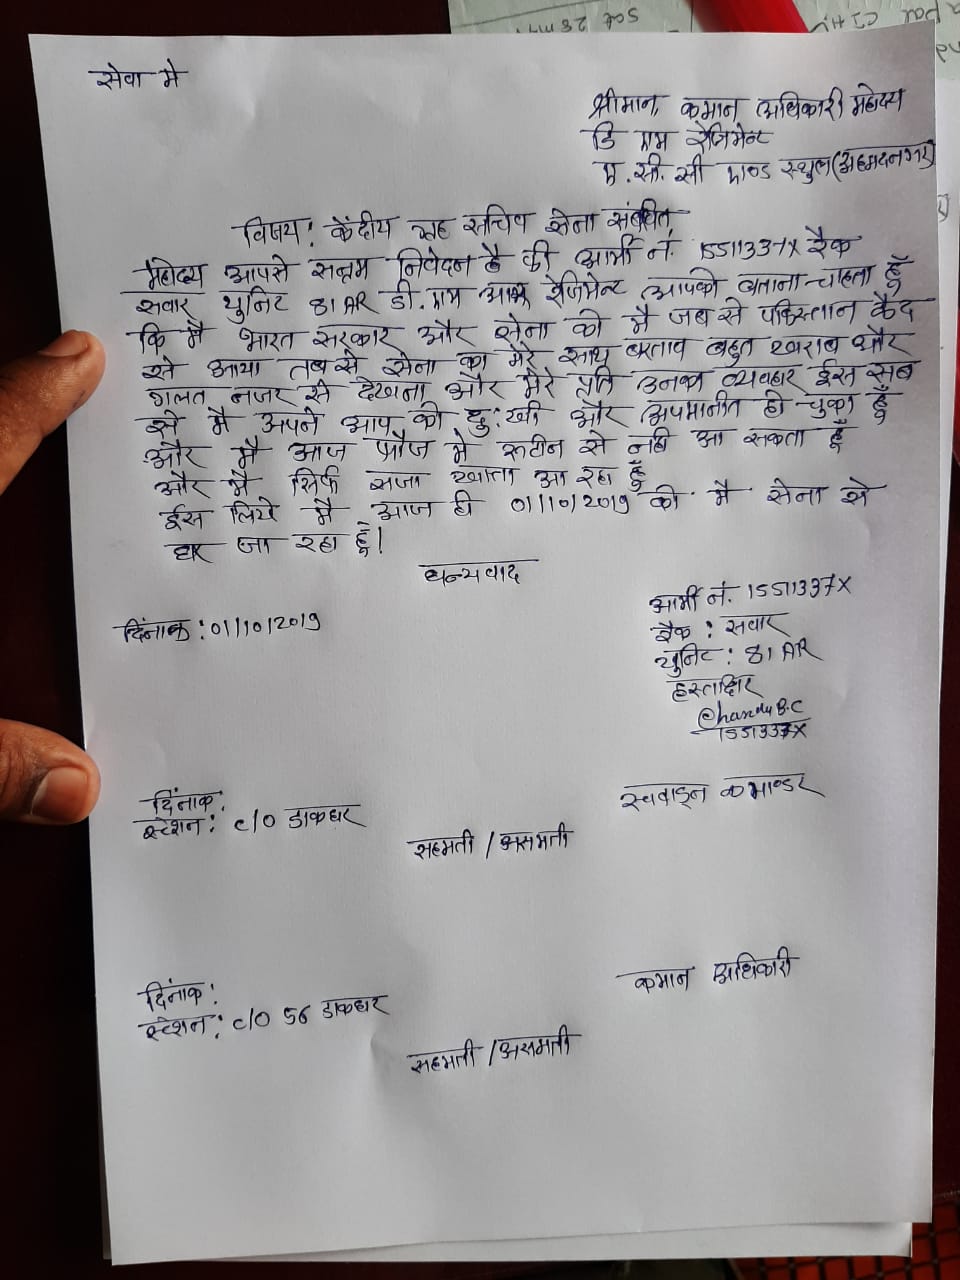 सेवा मे
श्रीमान, कमान अधिकारी महोदय
डि एम रेजिमेन्ट
ए.सी.सी एण्ड स्थुल(अहमदनगर)
विजय: केंदीय ग्रह सचिव सेना संबधित
महोदय आपसे सन्नम निवेदन है की आर्मी नं. 1551337X रैक
सवार युनिट 81 AR डी.एम रेजिमेन्ट आपको बताना चाहता हूँ
कि मै भारत सरकार और सेना को मै जब से पकिस्तान कैद
से आया तब से सेना का मेरे साथ बरताव बहुत खराब और
गलत नजर से देखना और मेरे प्रति उनका व्यवहार ईस सब
से मै अपने आप को दु:खी और अपमानीत हो चुका हूँ
और मै आज फौज मे रूटीन से नही आ सकता हूँ
और मै सिर्फ सजा खाता आ रहा हूँ
ईस लिये मै आज ही 01/10/2019 को मै सेना से
घर जा रहा हूँ।
धन्यवाद
दिंनाक: 01/10/2019
आर्मी नं. 1551337X
रैक : सवार
युनिट : 81 AR
हस्ताक्षिर
Chandu B.C
1551337X
दिंनाक:
स्टेशन: c/o डाकघर
स्कवाड्रन कमाण्डर
सहमती / असमती
दिंनाक:
स्टेशन: c/o 56 डाकघर
कमान अधिकारी
सहमती / असमती